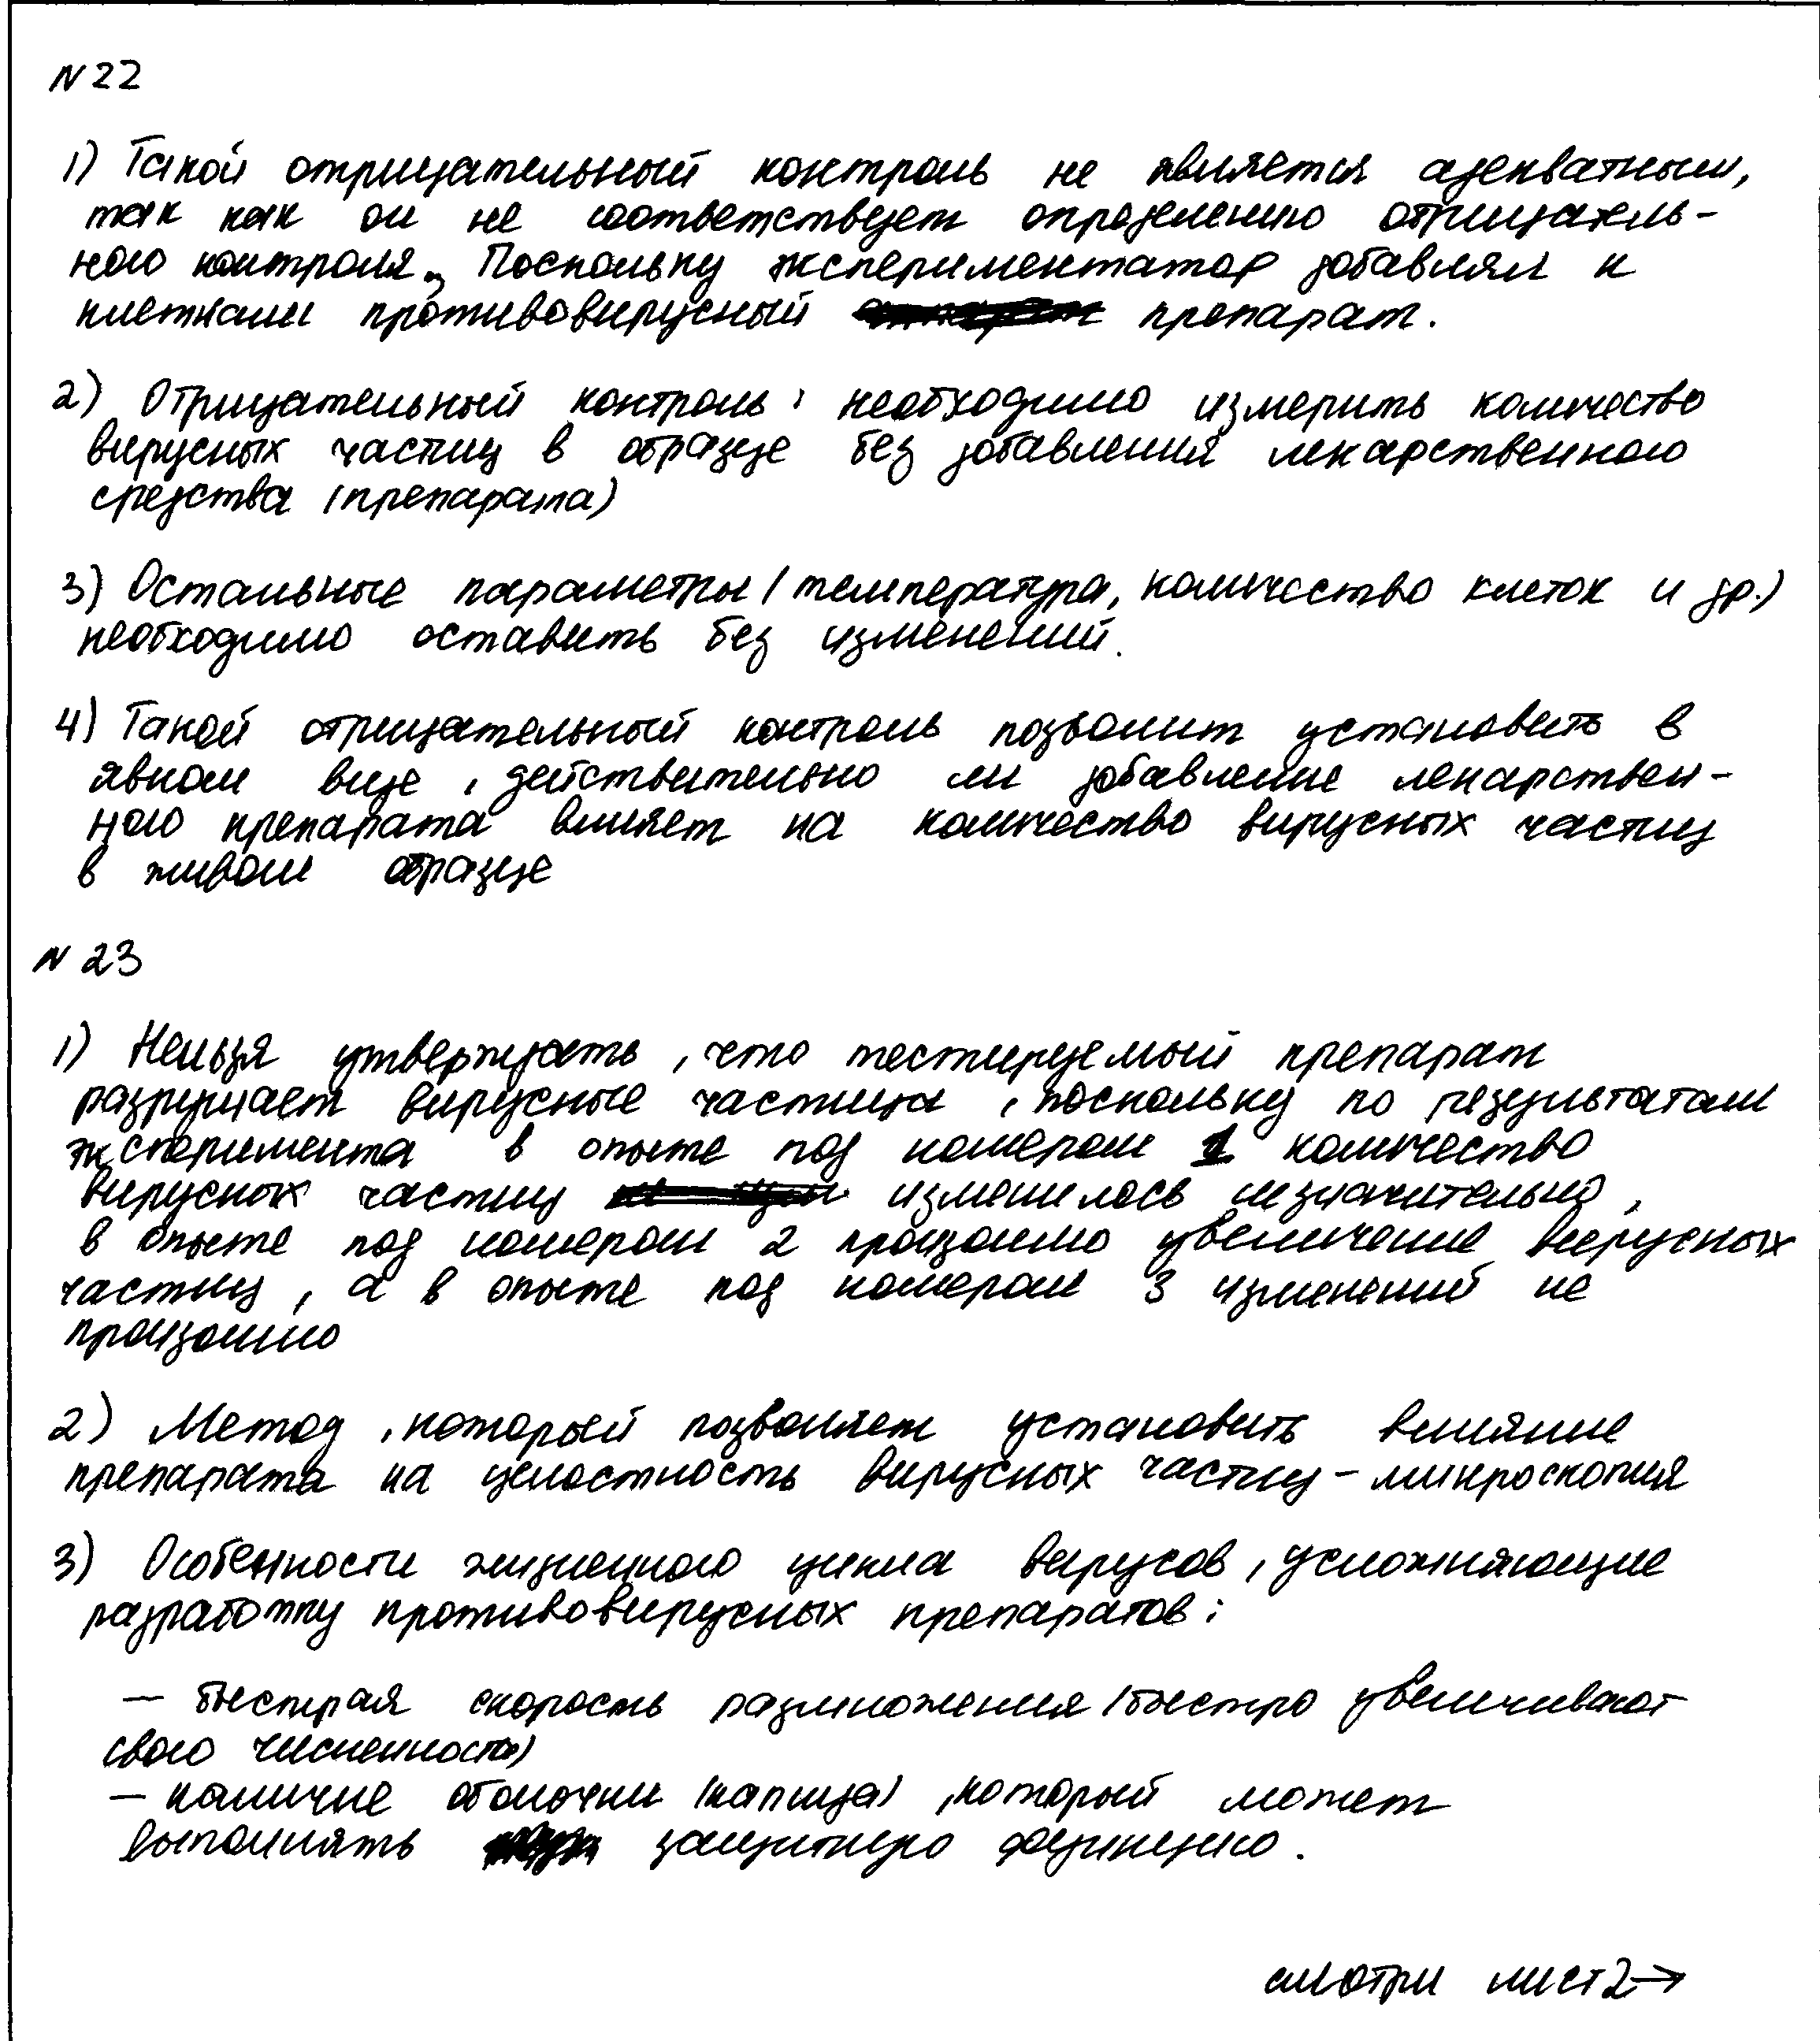 N 22
1) Такой отрицательный контроль не является адекватным,
так как он не соответствует определению отрицатель-
ного контроля. Поскольку экспериментатор добавлял к
клеткам противовирусный препарат.
2) Отрицательный контроль: необходимо измерить количество
вирусных частиц в образце без добавления лекарственного
средства (препарата)
3) Остальные параметры (температура, количество клеток и др.)
необходимо оставить без изменений.
4) Такой отрицательный контроль позволит установить в
явном виде, действительно ли добавление лекарствен-
ного препарата влияет на количество вирусных частиц
в живом образце
N 23
1) Нельзя утверждать, что тестируемый препарат
разрушает вирусные частицы, поскольку по результатам
эксперимента в опыте под номером 1 количество
вирусных частиц изменилось незначительно,
в опыте под номером 2 произошло увеличение вирусных
частиц, а в опыте под номером 3 изменений не
произошло
2) Метод, который позволяет установить влияние
препарата на целостность вирусных частиц - микроскопия
3) Особенности жизненного цикла вирусов, усложняющие
разработку противовирусных препаратов:
— быстрая скорость размножения (быстро увеличивают
свою численность)
— наличие оболочки (капсида), который может
выполнять защитную функцию.
смотри лист 2→